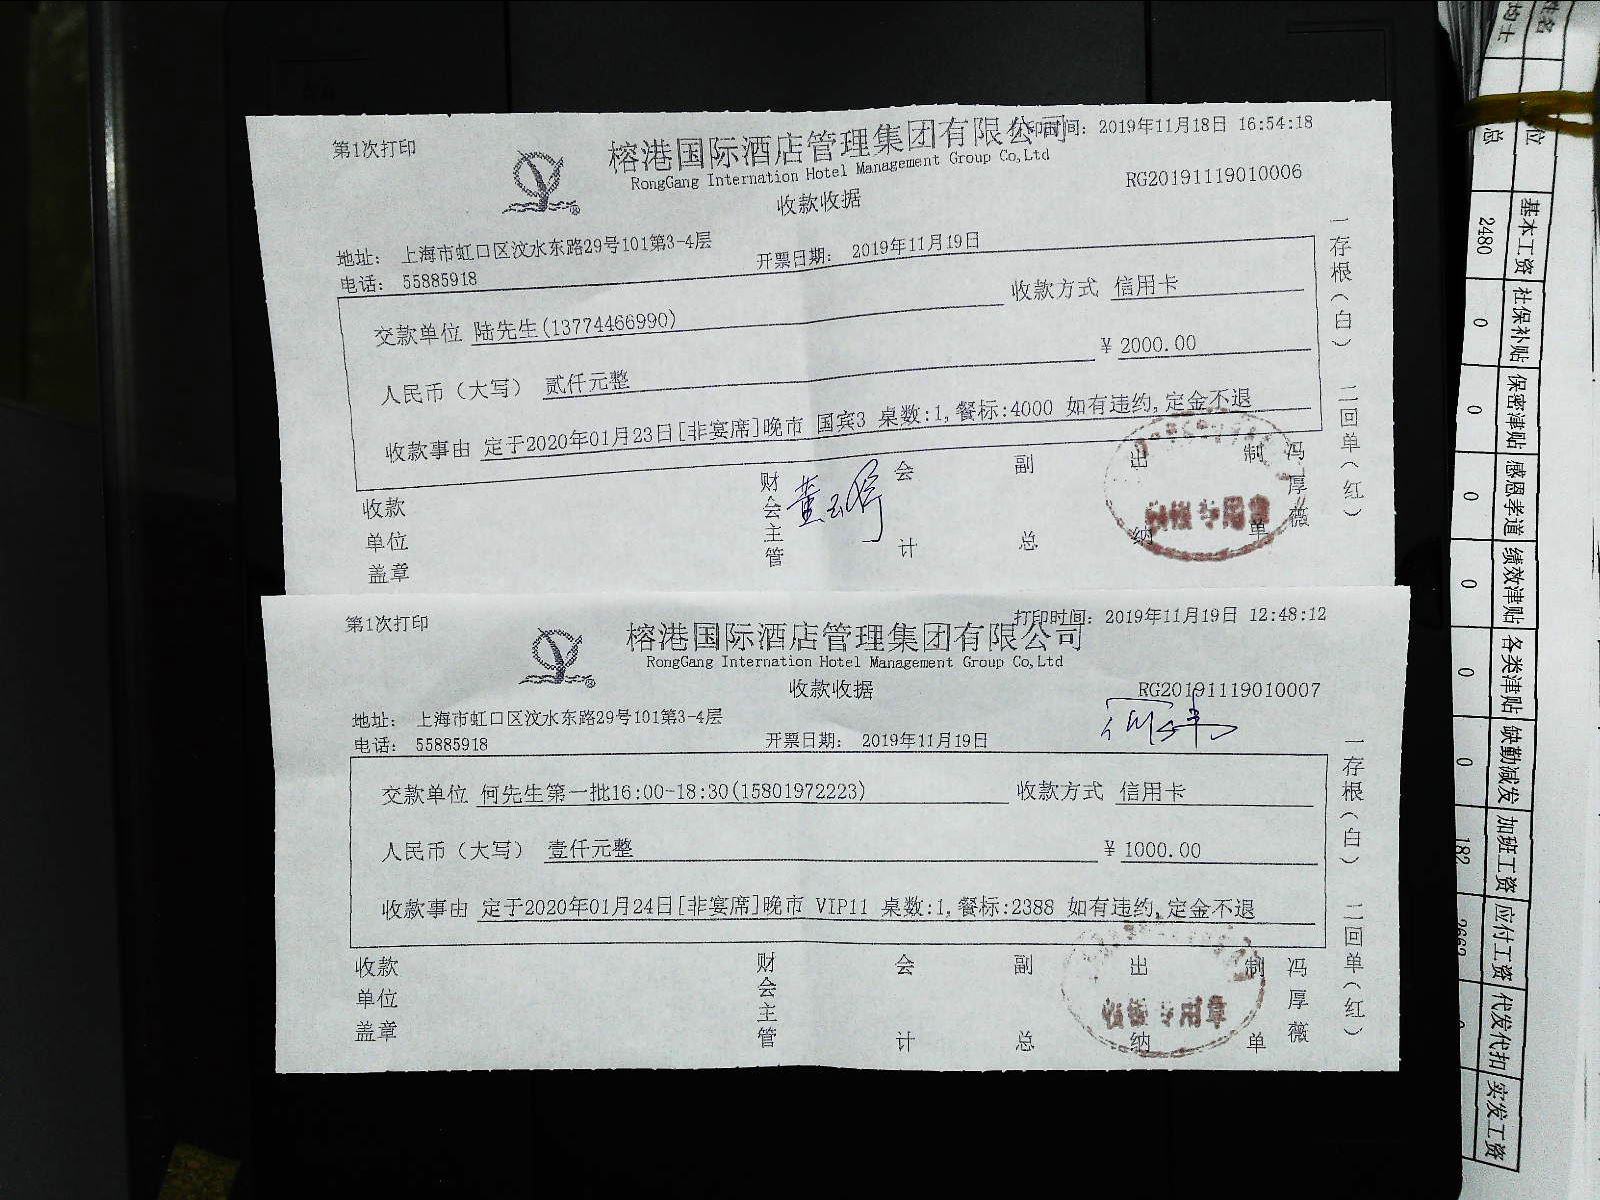 第1次打印
榕港国际酒店管理集团有限公司
打印时间: 2019年11月18日 16:54:18
RongGang Internation Hotel Management Group Co,Ltd
RG20191119010006
收款收据
地址: 上海市虹口区汶水东路29号101第3-4层
电话: 55885918
开票日期: 2019年11月19日
交款单位 陆先生(13774466990) 收款方式 信用卡
人民币(大写) 贰仟元整 ¥ 2000.00
收款事由 定于2020年01月23日[非宴席]晚市 国宾3 桌数:1,餐标:4000 如有违约,定金不退
收款单位盖章 财会主管 会计 副总 出纳 制单 冯厚薇
一存根(白) 二回单(红)
第1次打印
榕港国际酒店管理集团有限公司
打印时间: 2019年11月19日 12:48:12
RongGang Internation Hotel Management Group Co,Ltd
RG20191119010007
收款收据
地址: 上海市虹口区汶水东路29号101第3-4层
电话: 55885918
开票日期: 2019年11月19日
交款单位 何先生第一批16:00-18:30(15801972223) 收款方式 信用卡
人民币(大写) 壹仟元整 ¥ 1000.00
收款事由 定于2020年01月24日[非宴席]晚市 VIP11 桌数:1,餐标:2388 如有违约,定金不退
收款单位盖章 财会主管 会计 副总 出纳 制单 冯厚薇
一存根(白) 二回单(红)
姓名
基本工资 社保补贴 保密津贴 感恩孝道 绩效津贴 各类津贴 缺勤减发 加班工资 应付工资 代发代扣 实发工资
2480 0 0 0 0 0 0 182